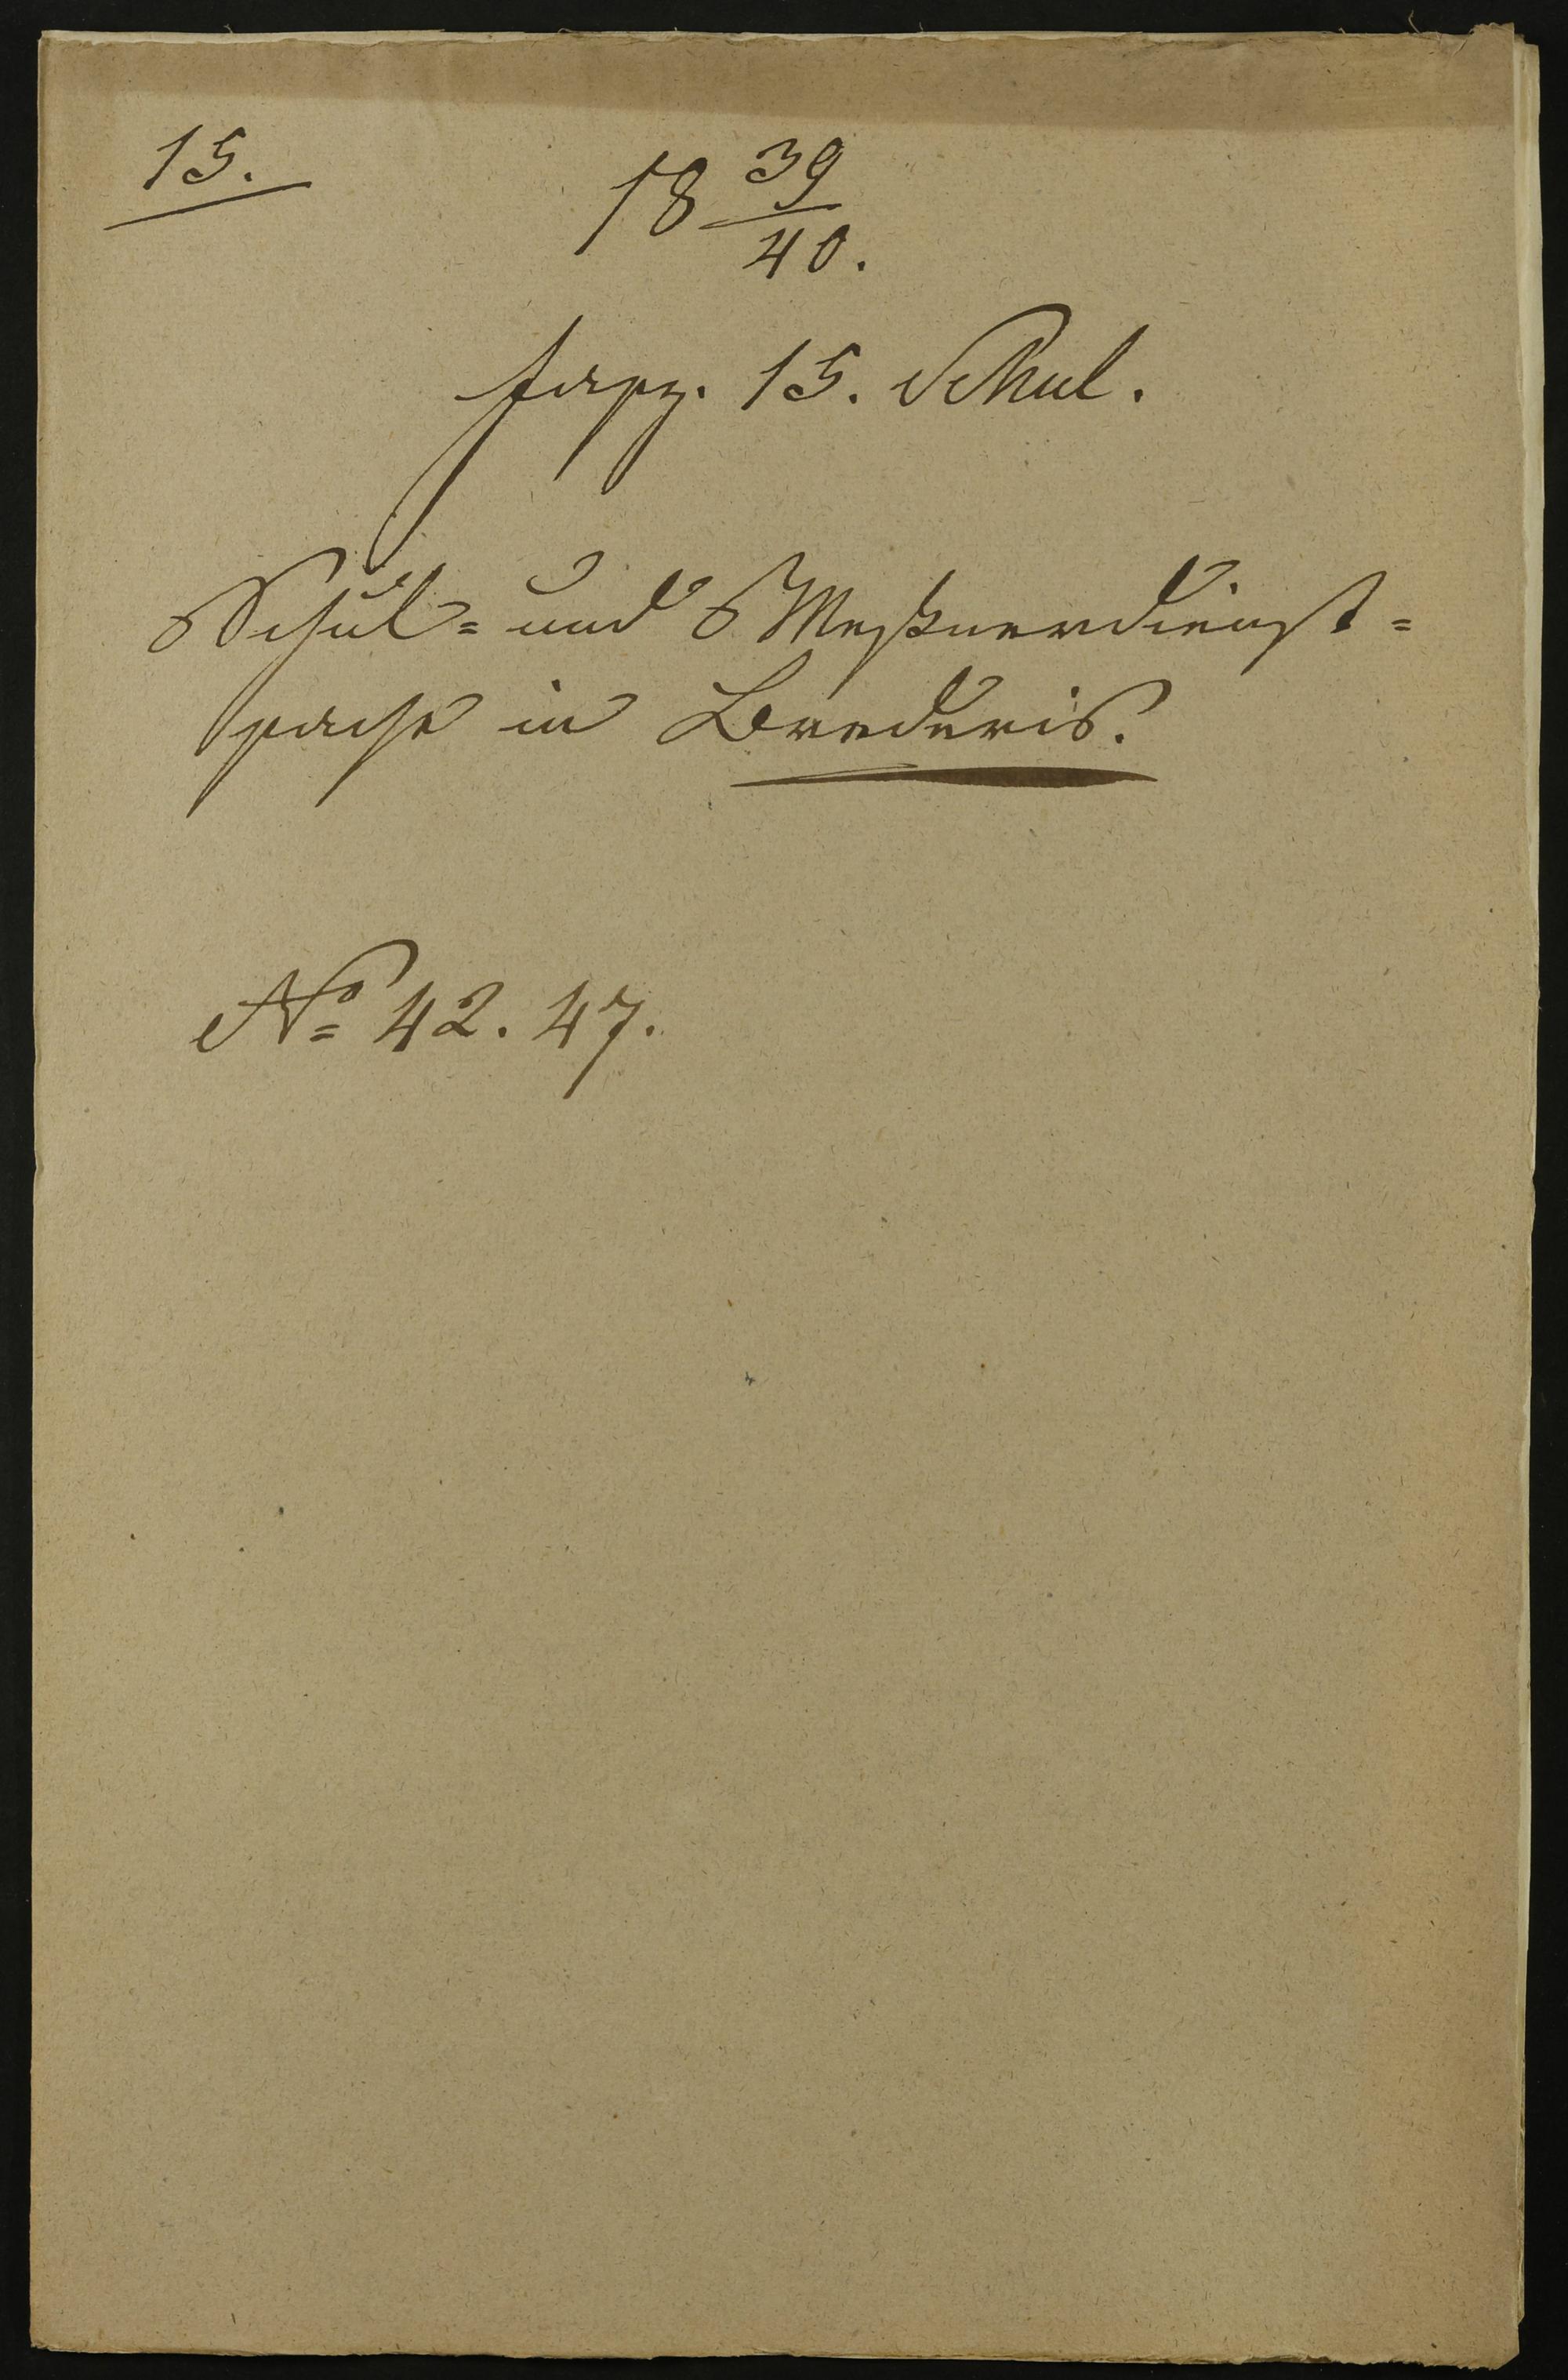 15.
18 39/40.
Fasz. 15. Schul.
Schul= und Meßnerdienst=
sache in Brederis.
No 42. 47.